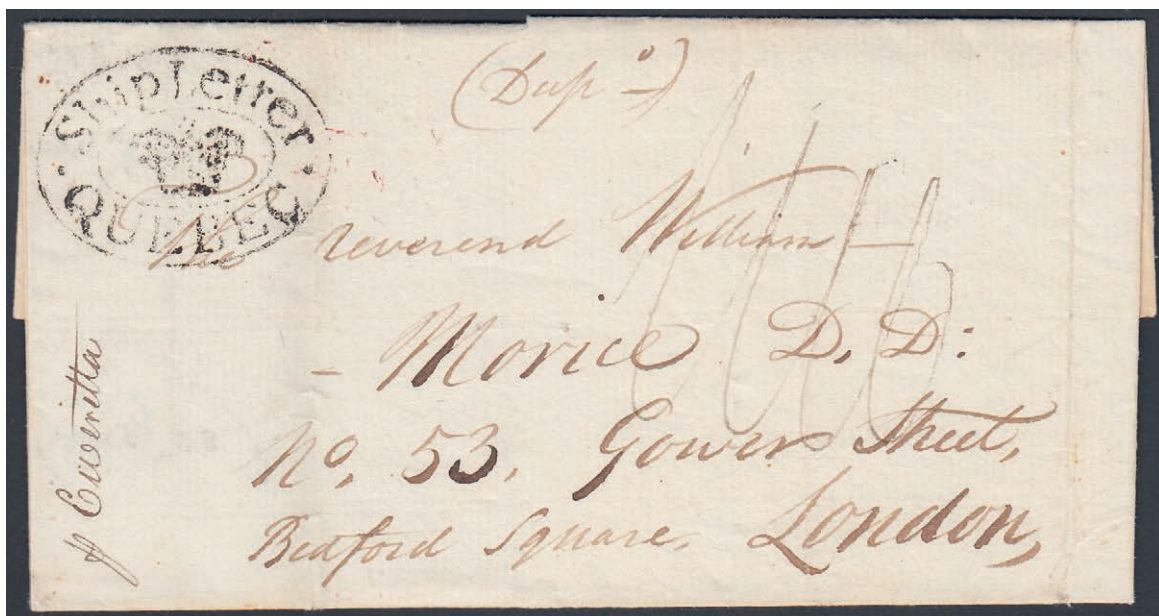 Ship Letter
QUEBEC
(Dupo)
The reverend William —
– Morice D. D:
No. 53, Gower Street,
Bedford Square, London,
p Eweretta